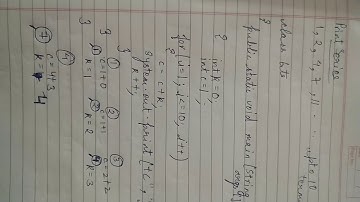 Print Series
1, 2, 4, 7, 11 - .... upto 10
terms
class
{
public static void main (String
args[])
{
int k=0,
int c=1,
for (i=1; i<=10; i++)
{
c = c+k,
System.out.print (+c," ")
k++;
}
}
}
① c=1+0
k=1
② c=1+1
k=2
③ c=2+2
④ k=3
④
c=4+3
⑦ k=4